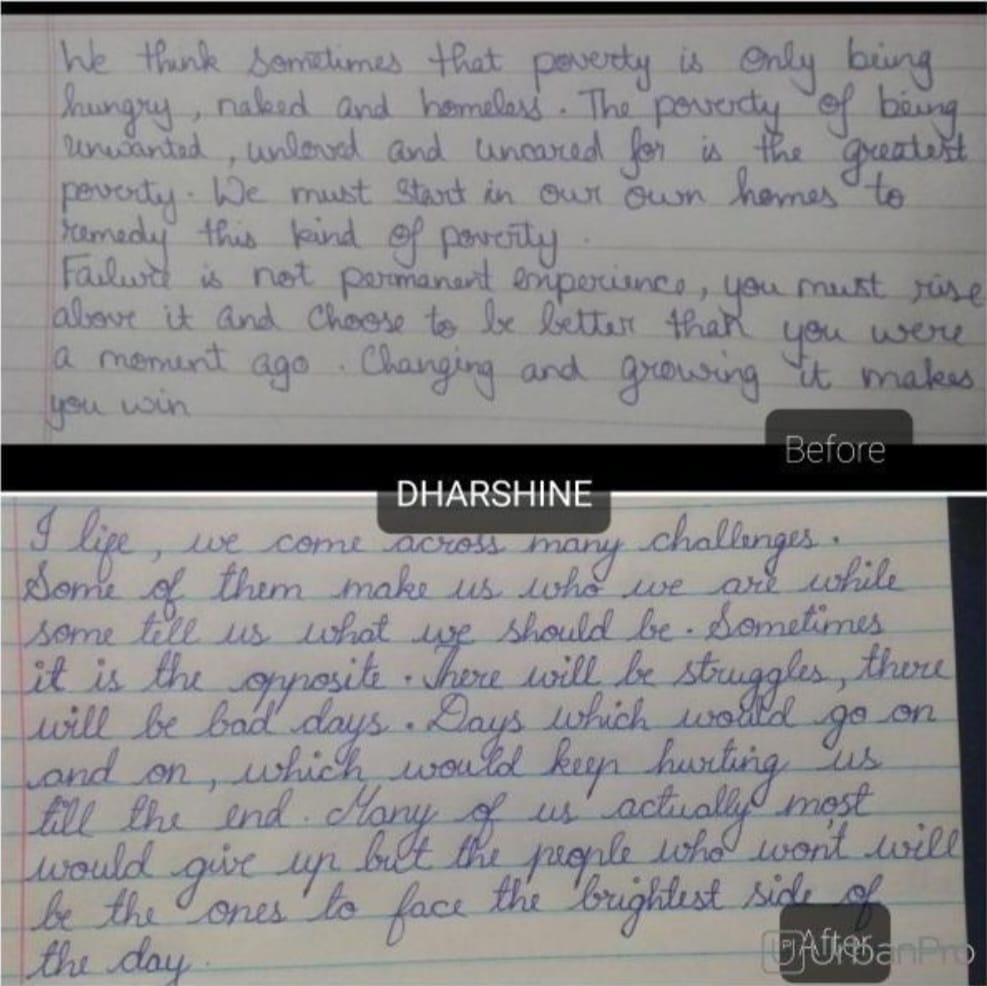 We think sometimes that poverty is only being
hungry, naked and homeless. The poverty of being
unwanted, unloved and uncared for is the greatest
poverty. We must start in our own homes to
remedy this kind of poverty.
Failure is not permanent enperience, you must rise
above it and choose to be better than you were
a moment ago. Changing and growing it makes
you win
Before
DHARSHINE
I life, we come across many challenges.
Some of them make us who we are while
some tell us what we should be. Sometimes
it is the opposite. There will be struggles, there
will be bad days. Days which would go on
and on, which would keep hurting us
till the end. Many of us actually most
would give up but the people who won't will
be the ones to face the brightest side of
the day.
After
UrbanPro